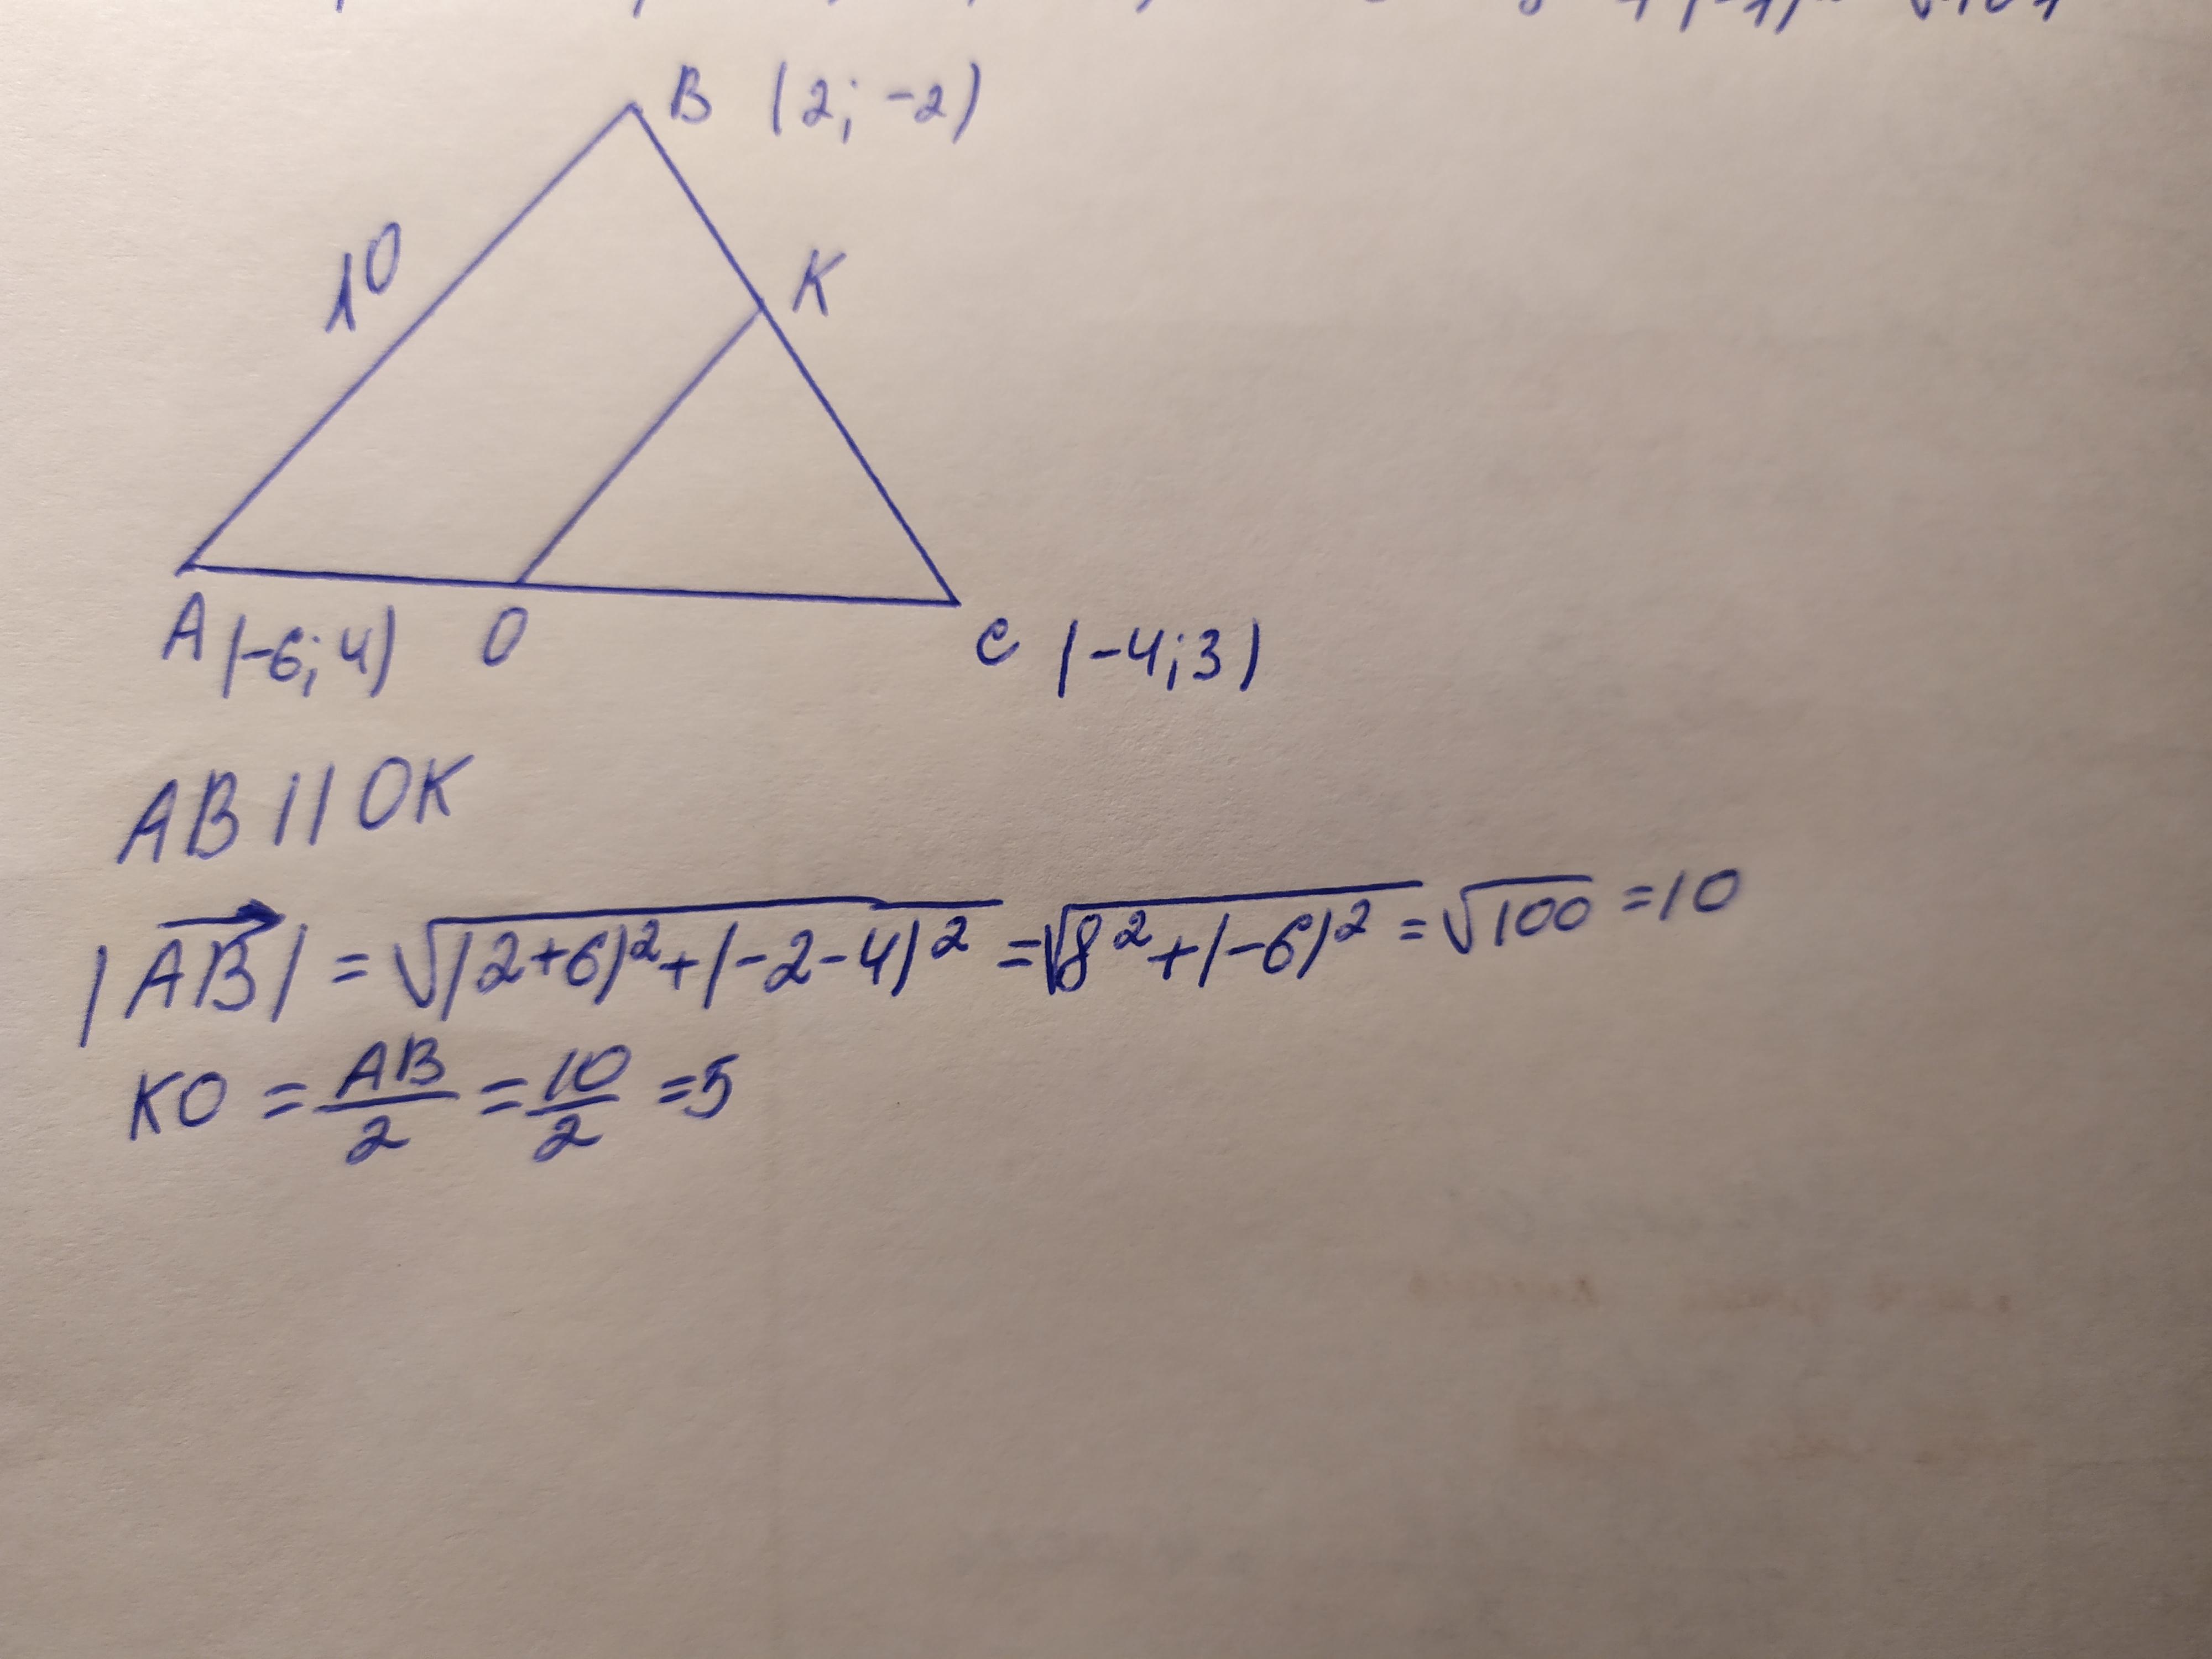 B (2; -2)
10
K
A (-6; 4) O C (-4; 3)
AB || OK
|AB| = √(2+6)²+(-2-4)² = √8²+(-6)² = √100 = 10
KO = AB/2 = 10/2 = 5